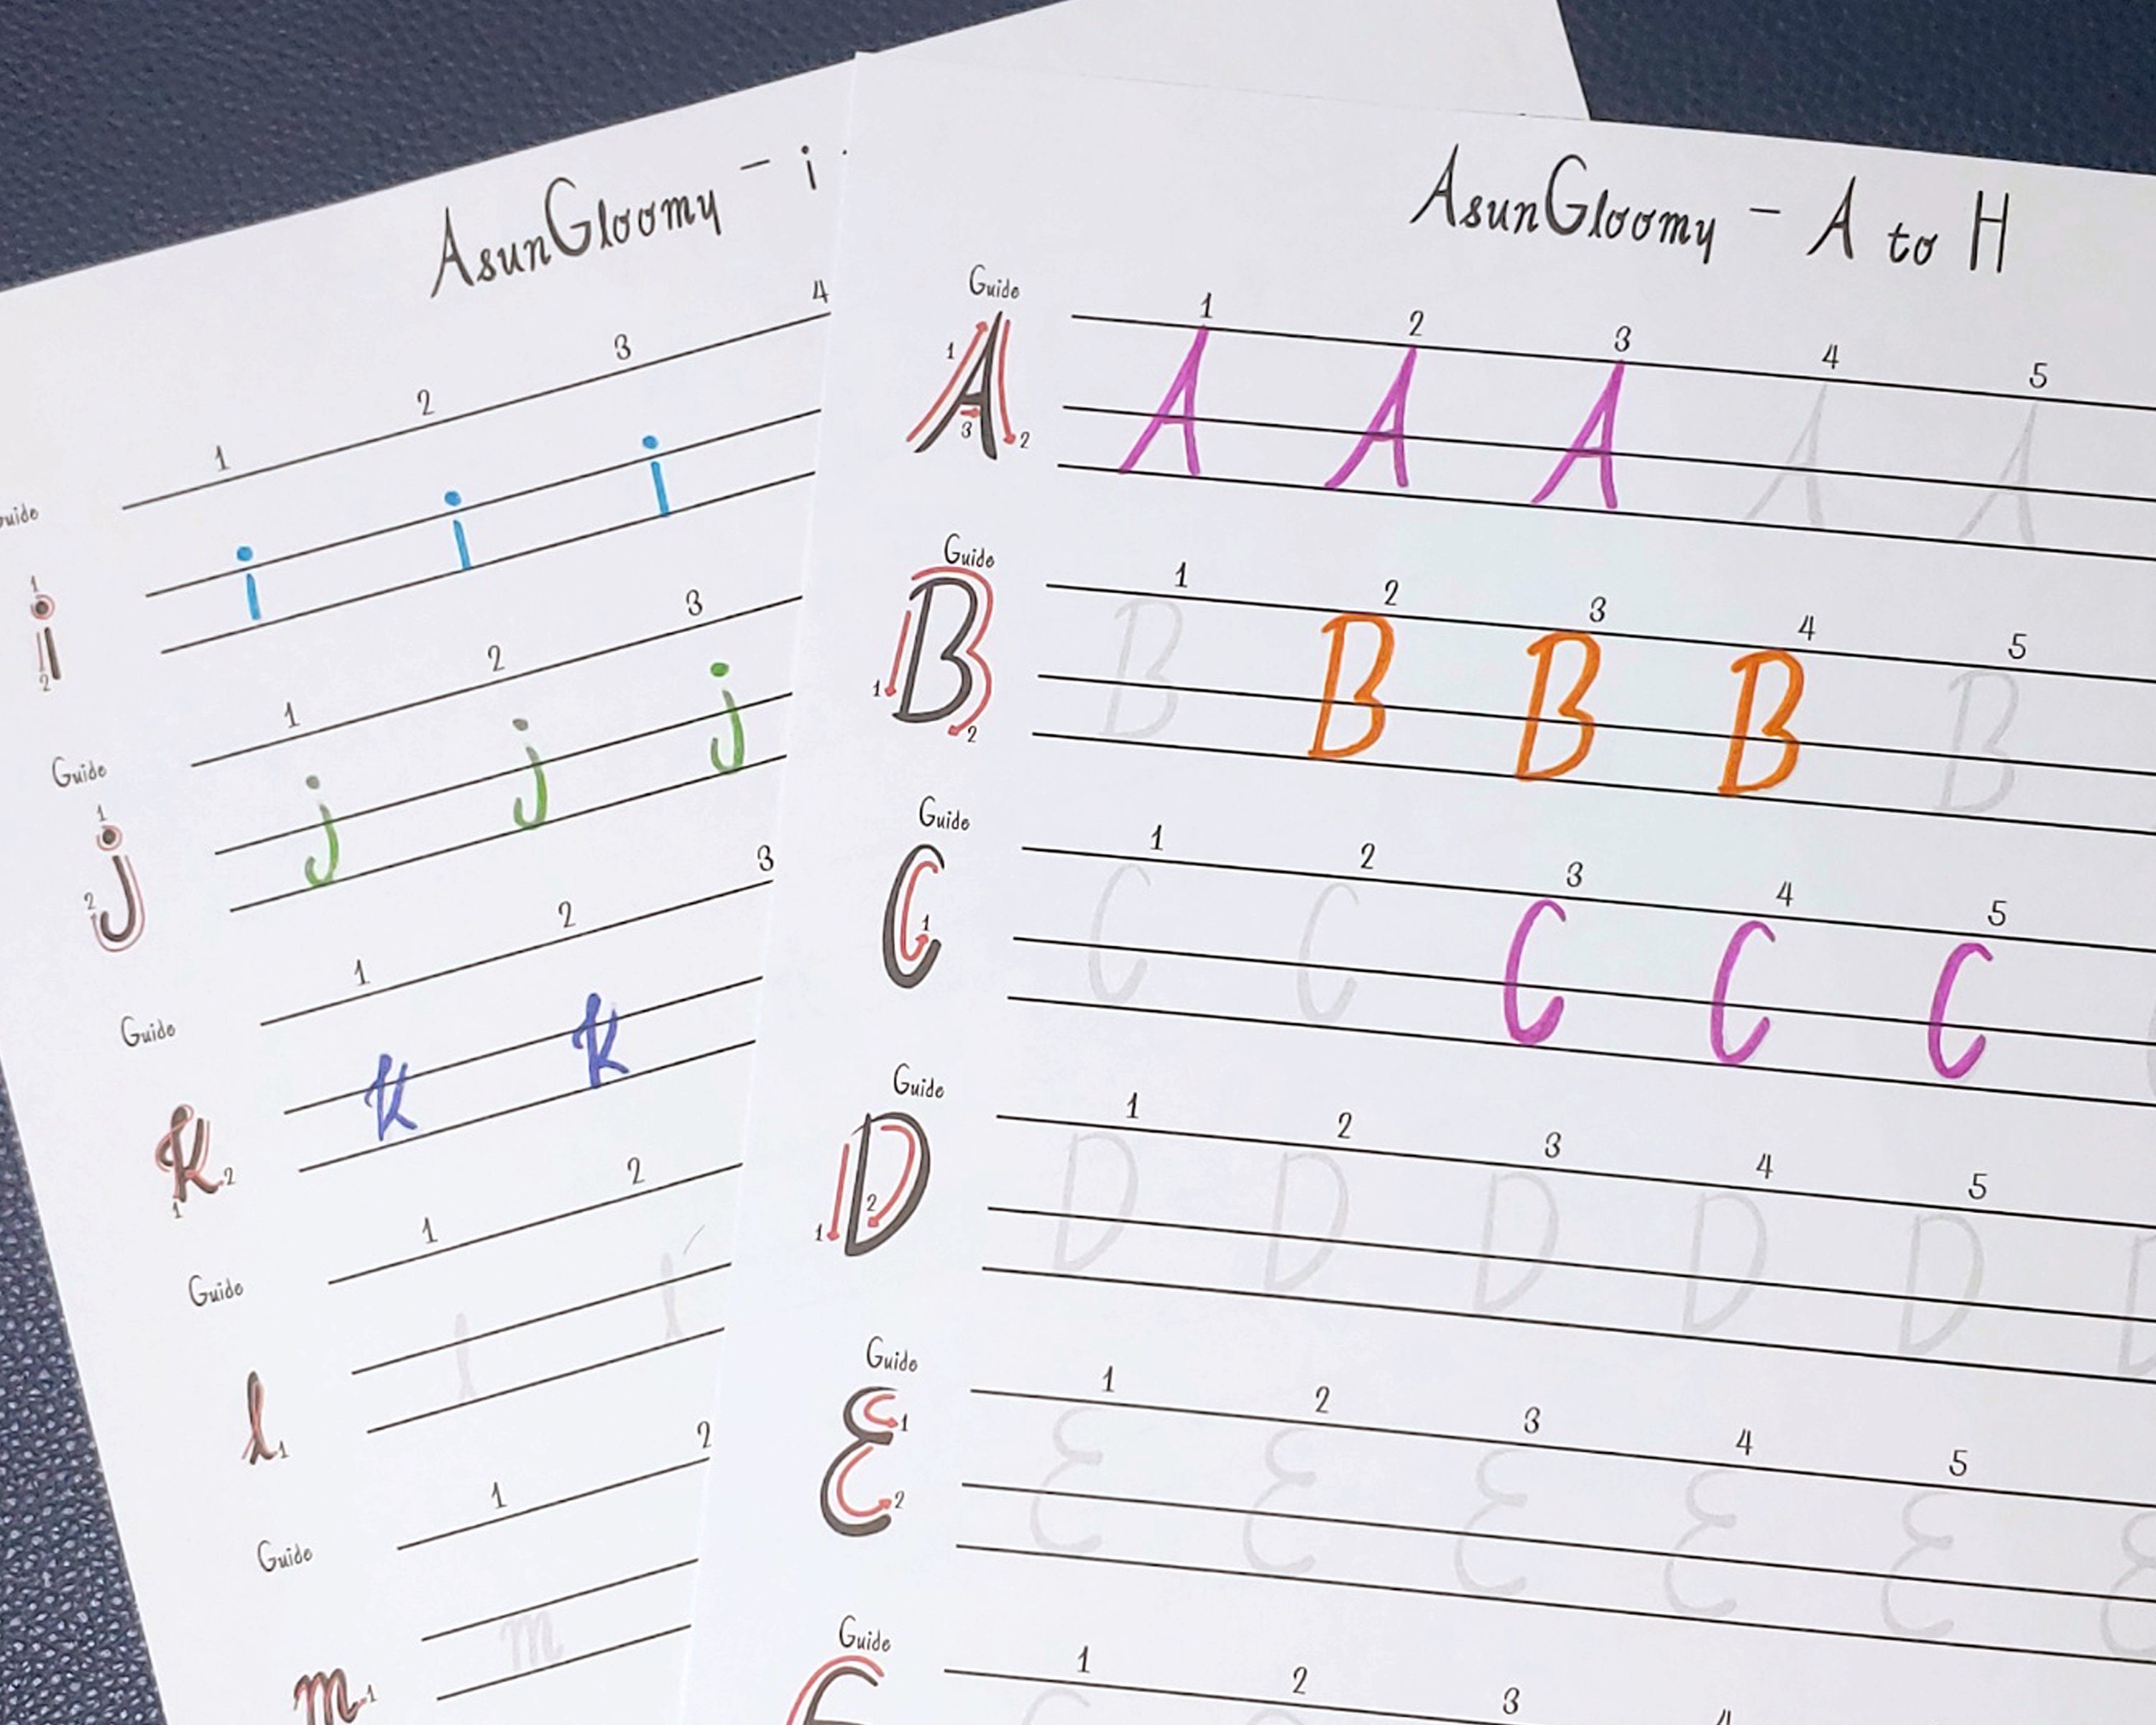 AsunGloomy - i
1 2 3 4
Guide
1
i i i i
2
1 2 3
Guide
1
j j j j
2
1 2 3
Guide
k k k
1 2
1 2
Guide
l l l
1
1 2
Guide
m m
1
AsunGloomy - A to H
Guide
1 2 3 4 5
A A A A A A
1 2 3
Guide
1 2 3 4 5
B B B B B B
1 2
Guide
1 2 3 4 5
C C C C C C
1
Guide
1 2 3 4 5
D D D D D D
1 2
Guide
1 2 3 4 5
E E E E E E
1 2
Guide
1 2 3 4